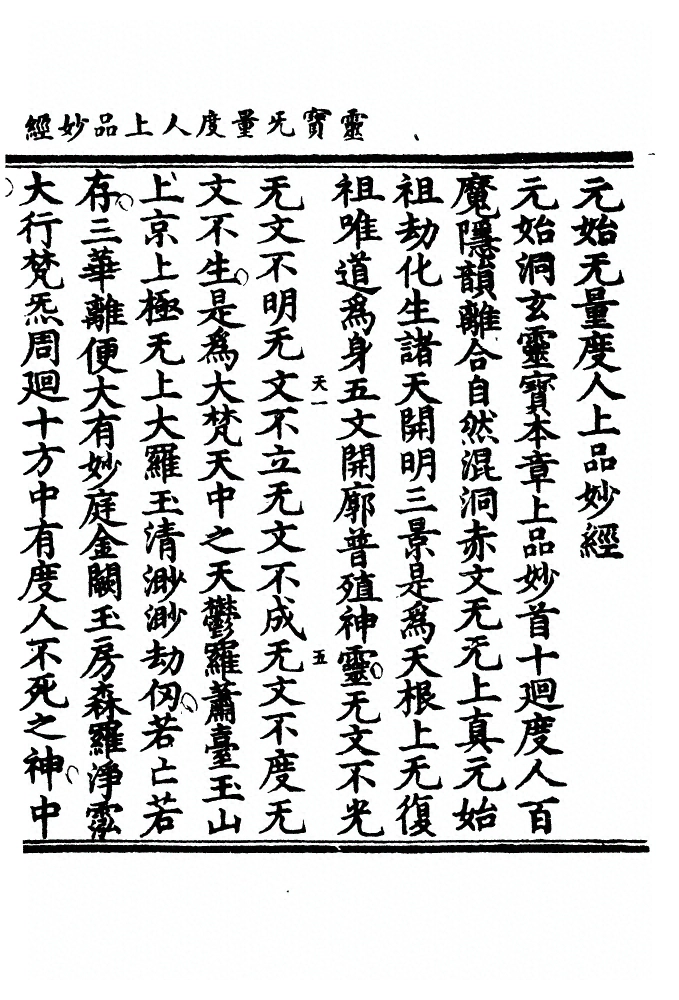 靈寶无量度人上品妙經
元始无量度人上品妙經
元始洞玄靈寶本章上品妙首十迴度人百
魔隱韻離合自然混洞赤文无无上真元始
祖劫化生諸天開明三景是為天根上无復
祖唯道為身五文開廓普殖神靈无文不光
天一
五
无文不明无文不立无文不成无文不度无
文不生是為大梵天中之天鬱羅蕭臺玉山
上京上極无上大羅玉清渺渺劫仞若亡若
存三華離便大有妙庭金闕玉房森羅淨泓
大行梵炁周迴十方中有度人不死之神中